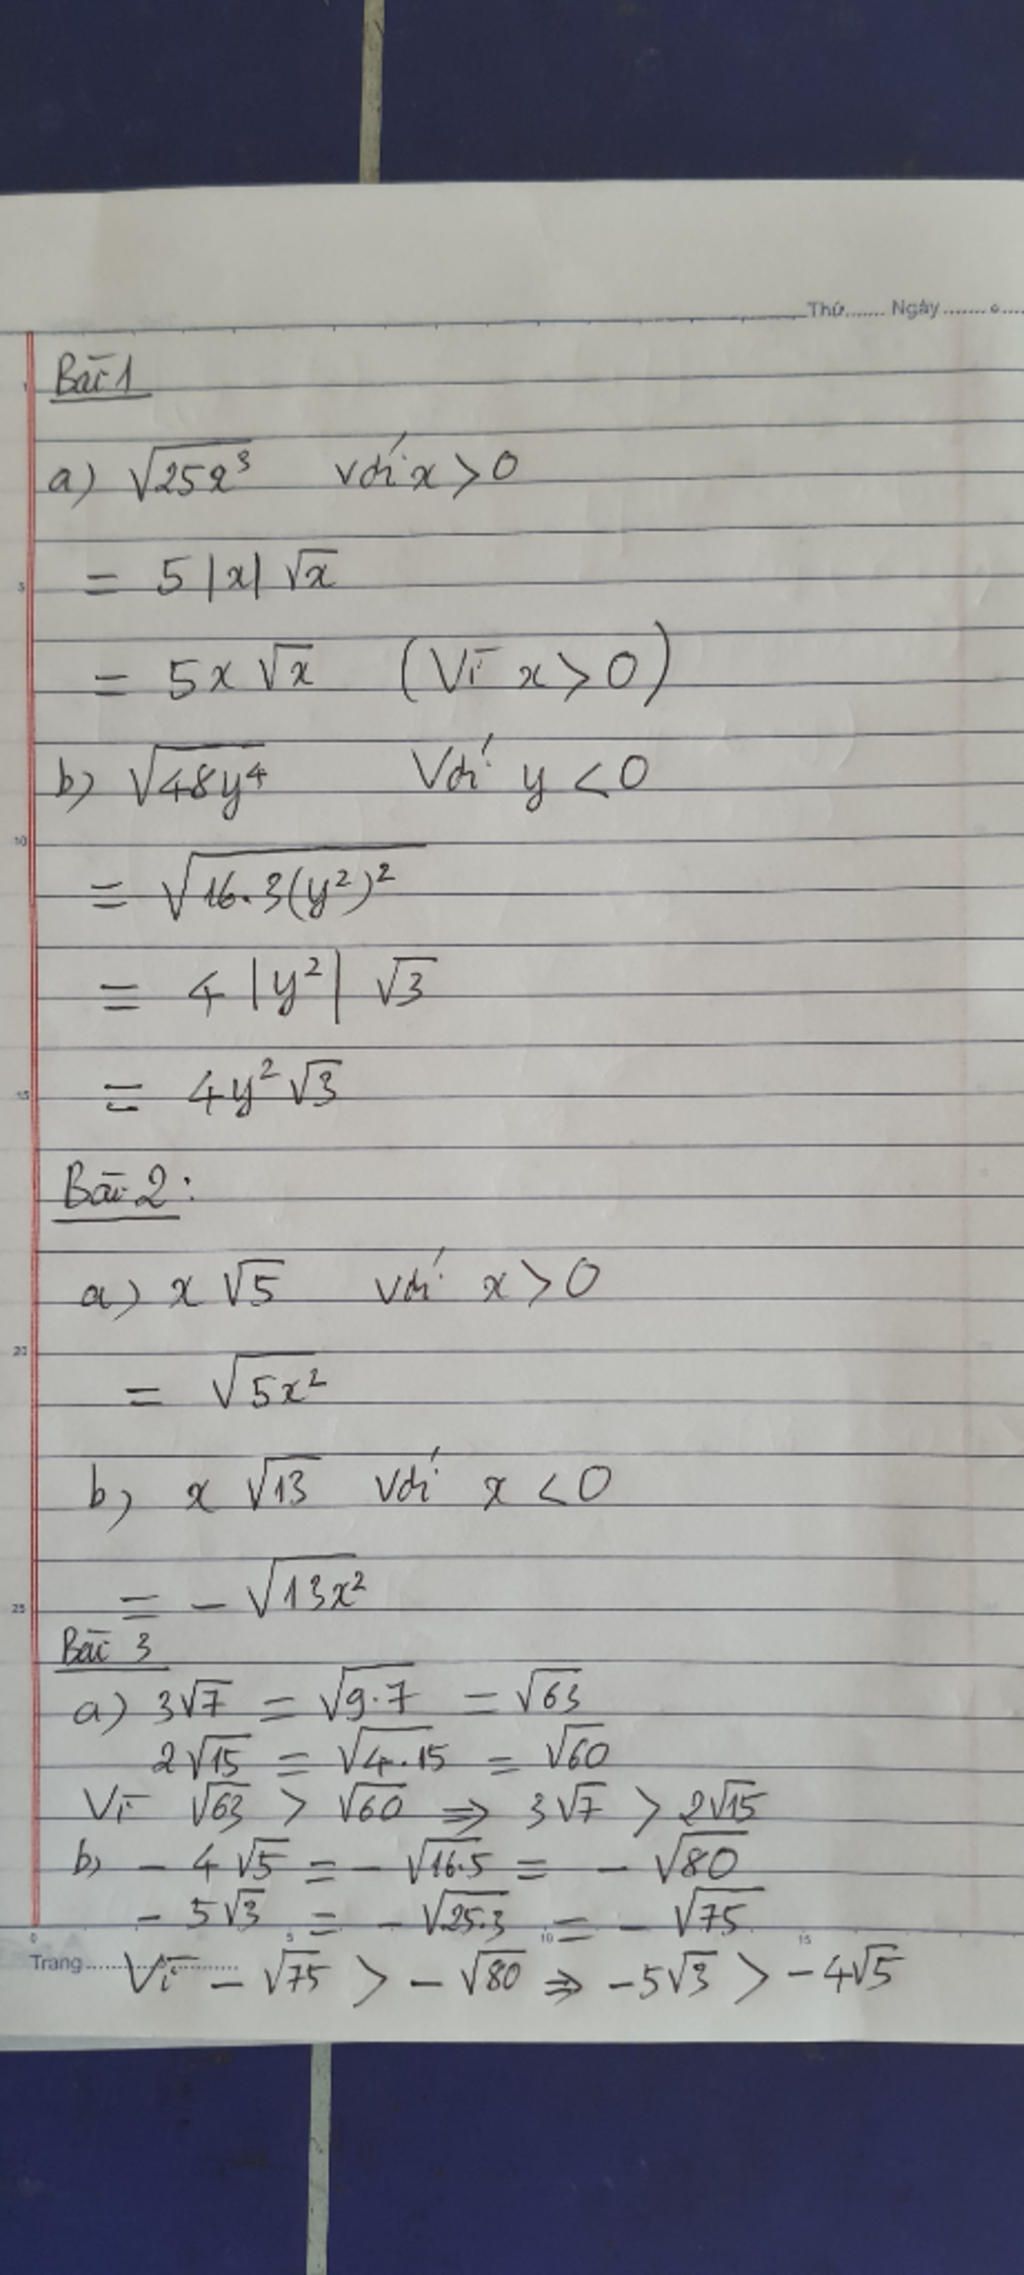 Thứ....... Ngày.......
Bài 1
a) √25x³ với x > 0
= 5 |x| √x
= 5x √x (Vì x > 0)
b) √48y⁴ Với y < 0
= √16.3(y²)²
= 4 |y²| √3
= 4y² √3
Bài 2:
a) x √5 với x > 0
= √5x²
b) x √13 với x < 0
= - √13x²
Bài 3
a) 3√7 = √9.7 = √63
2√15 = √4.15 = √60
Vì √63 > √60 ⇒ 3√7 > 2√15
b) - 4√5 = - √16.5 = - √80
- 5√3 = - √25.3 = - √75
Trang..................
Vì - √75 > - √80 ⇒ -5√3 > -4√5